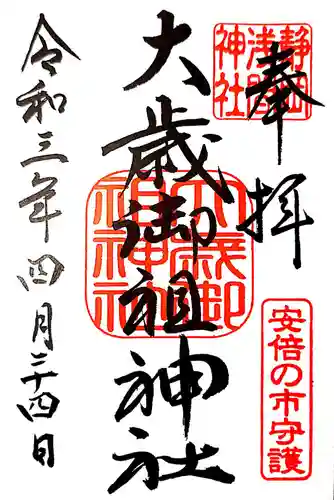 奉拝
静岡
浅間
神社
安倍の市守護
大歳御祖神社
大歳御
祖神社
令和三年四月二十四日